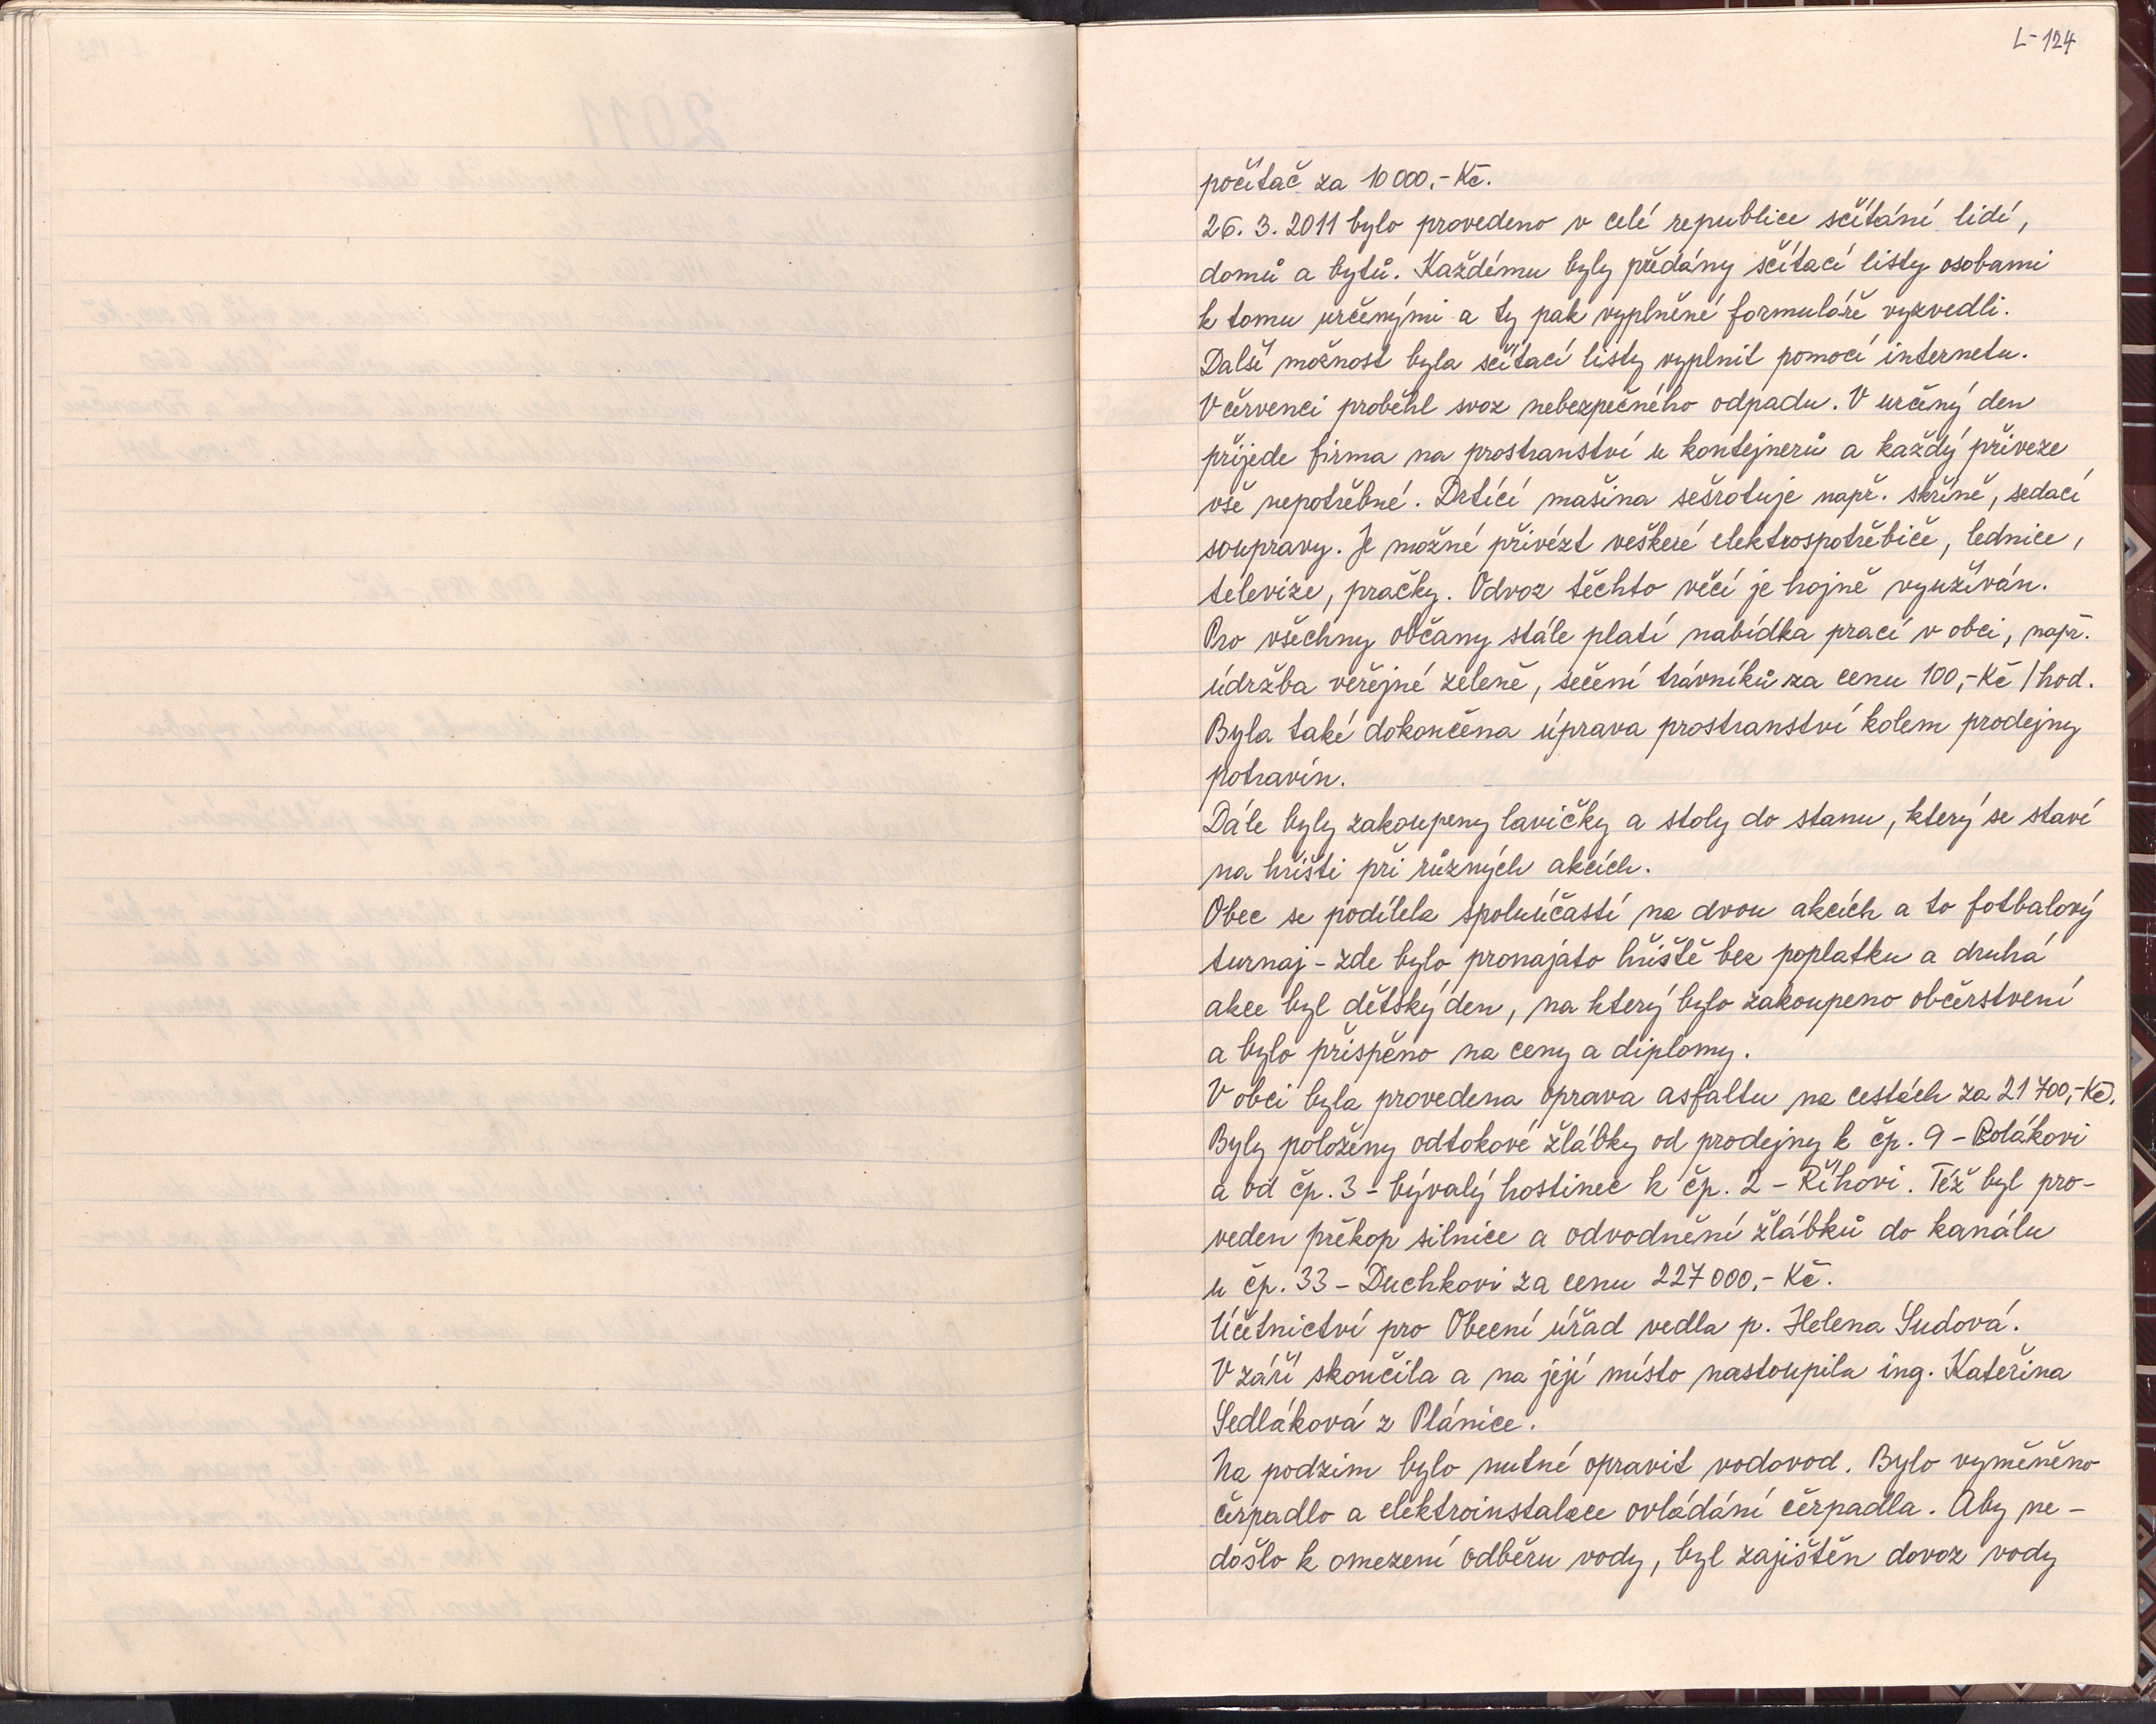 L-124
počítač za 10 000,- Kč.
26. 3. 2011 bylo provedeno v celé republice sčítání lidí,
domů a bytů. Každému byly předány sčítací listy osobami
k tomu určenými a ty pak vyplněné formuláře vyzvedli.
Další možnost byla sčítací listy vyplnit pomocí internetu.
V červenci proběhl svoz nebezpečného odpadu. V určený den
přijede firma na prostranství u kontejnerů a každý přiveze
vše nepotřebné. Drtící mašina sešrotuje např. skříně, sedací
soupravy. Je možné přivézt veškeré elektrospotřebiče, lednice,
televize, pračky. Odvoz těchto věcí je hojně využíván.
Pro všechny občany stále platí nabídka prací v obci, např.
údržba veřejné zeleně, sečení trávníků za cenu 100,- Kč/hod.
Byla také dokončena úprava prostranství kolem prodejny
potravin.
Dále byly zakoupeny lavičky a stoly do stanu, který se staví
na hřišti při různých akcích.
Obec se podílela spoluúčastí na dvou akcích a to fotbalový
turnaj - zde bylo pronajato hřiště bez poplatku a druhá
akce byl dětský den, na který bylo zakoupeno občerstvení
a bylo přispěno na ceny a diplomy.
V obci byla provedena oprava asfaltu na cestách za 21 700,- Kč.
Byly položeny odtokové žlábky od prodejny k čp. 9 - Polákovi
a od čp. 3 - bývalý hostinec k čp. 2 - Říhovi. Též byl pro-
veden překop silnice a odvodnění žlábků do kanálu
u čp. 33 - Duchkovi za cenu 227 000,- Kč.
Účetnictví pro Obecní úřad vedla p. Helena Sudová.
V září skončila a na její místo nastoupila ing. Kateřina
Sedláková z Plánice.
Na podzim bylo nutné opravit vodovod. Bylo vyměněno
čerpadlo a elektroinstalace ovládání čerpadla. Aby ne-
došlo k omezení odběru vody, byl zajištěn dovoz vody